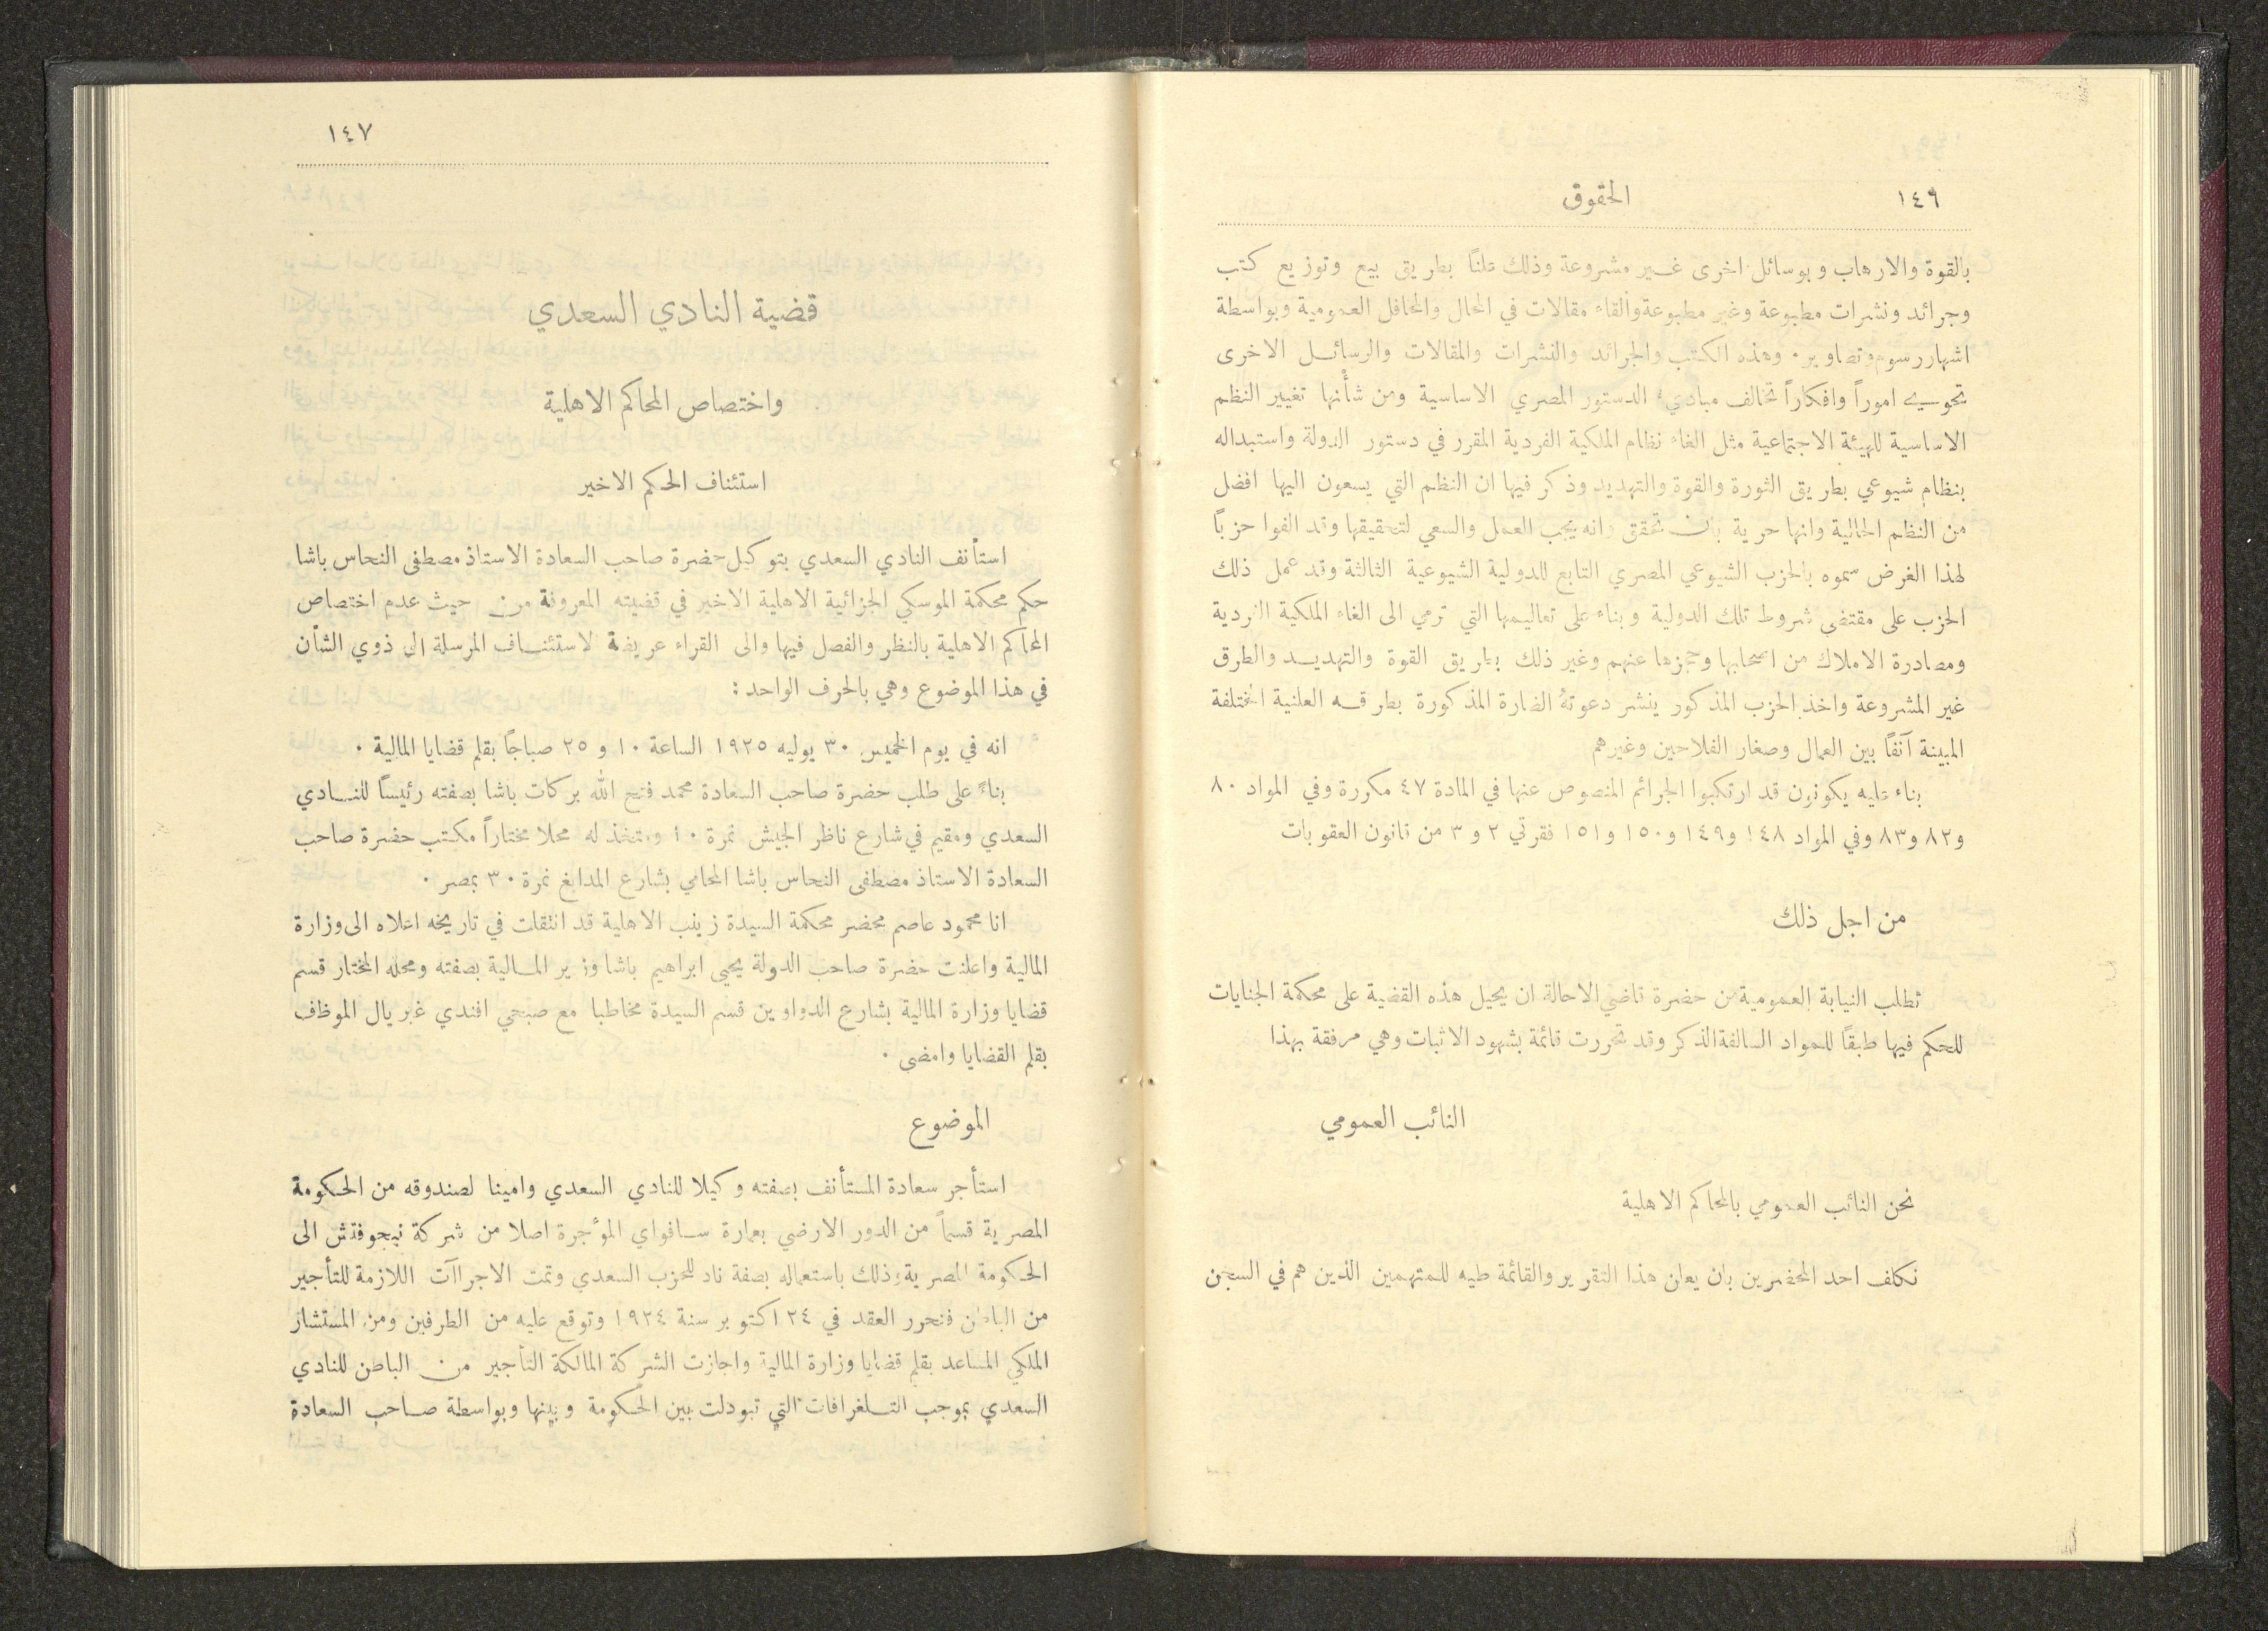 ١٤٩
الحقوق
بالقوة والارهاب وبوسائل اخرى غير مشروعة وذلك علنًا بطريق بيع وتوزيع كتب
وجرائد ونشرات مطبوعة وغير مطبوعة والقاء مقالات في المحال والمحافل العمومية وبواسطة
اشهار رسوم وتصاوير ٠ وهذه الكتب والجرائد والنشرات والمقالات والرسائل الاخرى
تحوي اموراً وافكاراً تخالف مبادىء الدستور المصري الاساسية ومن شأنها تغيير النظم
الاساسية للهيئة الاجتماعية مثل الغاء نظام الملكية الفردية المقرر في دستور الدولة واستبداله
بنظام شيوعي بطريق الثورة والقوة والتهديد وذكر فيها ان النظم التي يسعون اليها افضل
من النظم الحالية وانها حرية بان تحقق وانه يجب العمل والسعي لتحقيقها وقد الفوا حزبًا
لهذا الغرض سموه بالحزب الشيوعي المصري التابع للدولية الشيوعية الثالثة وقد عمل ذلك
الحزب على مقتضى شروط تلك الدولية وبناء على تعاليمها التي ترمي الى الغاء الملكية الفردية
ومصادرة الاملاك من اصحابها وحجزها عنهم وغير ذلك بطريق القوة والتهديد والطرق
غير المشروعة واخذ الحزب المذكور ينشر دعوتهُ الضارة المذكورة بطرقه العلنية المختلفة
المبينة آنفًا بين العمال وصغار الفلاحين وغيرهم
بناء عليه يكونون قد ارتكبوا الجرائم المنصوص عنها في المادة ٤٧ مكررة وفي المواد ٨٠
و٨٢ و٨٣ وفي المواد ١٤٨ و١٤٩ و١٥٠ و١٥١ فقرتي ٢ و ٣ من قانون العقوبات
من اجل ذلك
تطلب النيابة العمومية من حضرة قاضي الاحالة ان يحيل هذه القضية على محكمة الجنايات
للحكم فيها طبقًا للمواد السالفة الذكر وقد تحررت قائمة بشهود الاثبات وهي مرفقة بهذا
النائب العمومي
نحن النائب العمومي بالمحاكم الاهلية
نكلف احد المحضرين بان يعلن هذا التقرير والقائمة طيه للمتهمين الذين هم في السجن
١٤٧
قضية النادي السعدي
واختصاص المحاكم الاهلية
استئناف الحكم الاخير
استأنف النادي السعدي بتوكيل حضرة صاحب السعادة الاستاذ مصطفى النحاس باشا
حكم محكمة الموسكي الجزائية الاهلية الاخير في قضيته المعروفة من حيث عدم اختصاص
المحاكم الاهلية بالنظر والفصل فيها والى القراء عريضة لاستئناف المرسلة الى ذوي الشأن
في هذا الموضوع وهي بالحرف الواحد :
انه في يوم الخميس ٣٠ يوليه ١٩٢٥ الساعة ١٠ و ٢٥ صباحًا بقلم قضايا المالية ٠
بناءً على طلب حضرة صاحب السعادة محمد فتح الله بركات باشا بصفته رئيسًا للنادي
السعدي ومقيم في شارع ناظر الجيش نمرة ١٠ ومتخذ له محلا مختاراً مكتب حضرة صاحب
السعادة الاستاذ مصطفى النحاس باشا المحامي بشارع المدابغ نمرة ٣٠ بمصر ٠
انا محمود عاصم محضر محكمة السيدة زينب الاهلية قد انتقلت في تاريخه اعلاه الى وزارة
المالية واعلنت حضرة صاحب الدولة يحيى ابراهيم باشا وزير المالية بصفته ومحله المختار قسم
قضايا وزارة المالية بشارع الدواوين قسم السيدة مخاطبا مع صبحي افندي غبريال الموظف
بقلم القضايا وامضى ٠
الموضوع
استأجر سعادة المستأنف بصفته وكيلا للنادي السعدي وامينا لصندوقه من الحكومة
المصرية قسماً من الدور الارضي بعمارة سافواي المؤجرة اصلا من شركة نيجوفتش الى
الحكومة المصرية وذلك باستعماله بصفة ناد للحزب السعدي وتمت الاجراآت اللازمة للتأجير
من الباطن فتحرر العقد في ٢٤ اكتوبر سنة ١٩٢٤ وتوقع عليه من الطرفين ومن المستشار
الملكي المساعد بقلم قضايا وزارة المالية واجازت الشركة المالكة التأجير من الباطن للنادي
السعدي بموجب التلغرافات التي تبودلت بين الحكومة وبينها وبواسطة صاحب السعادة